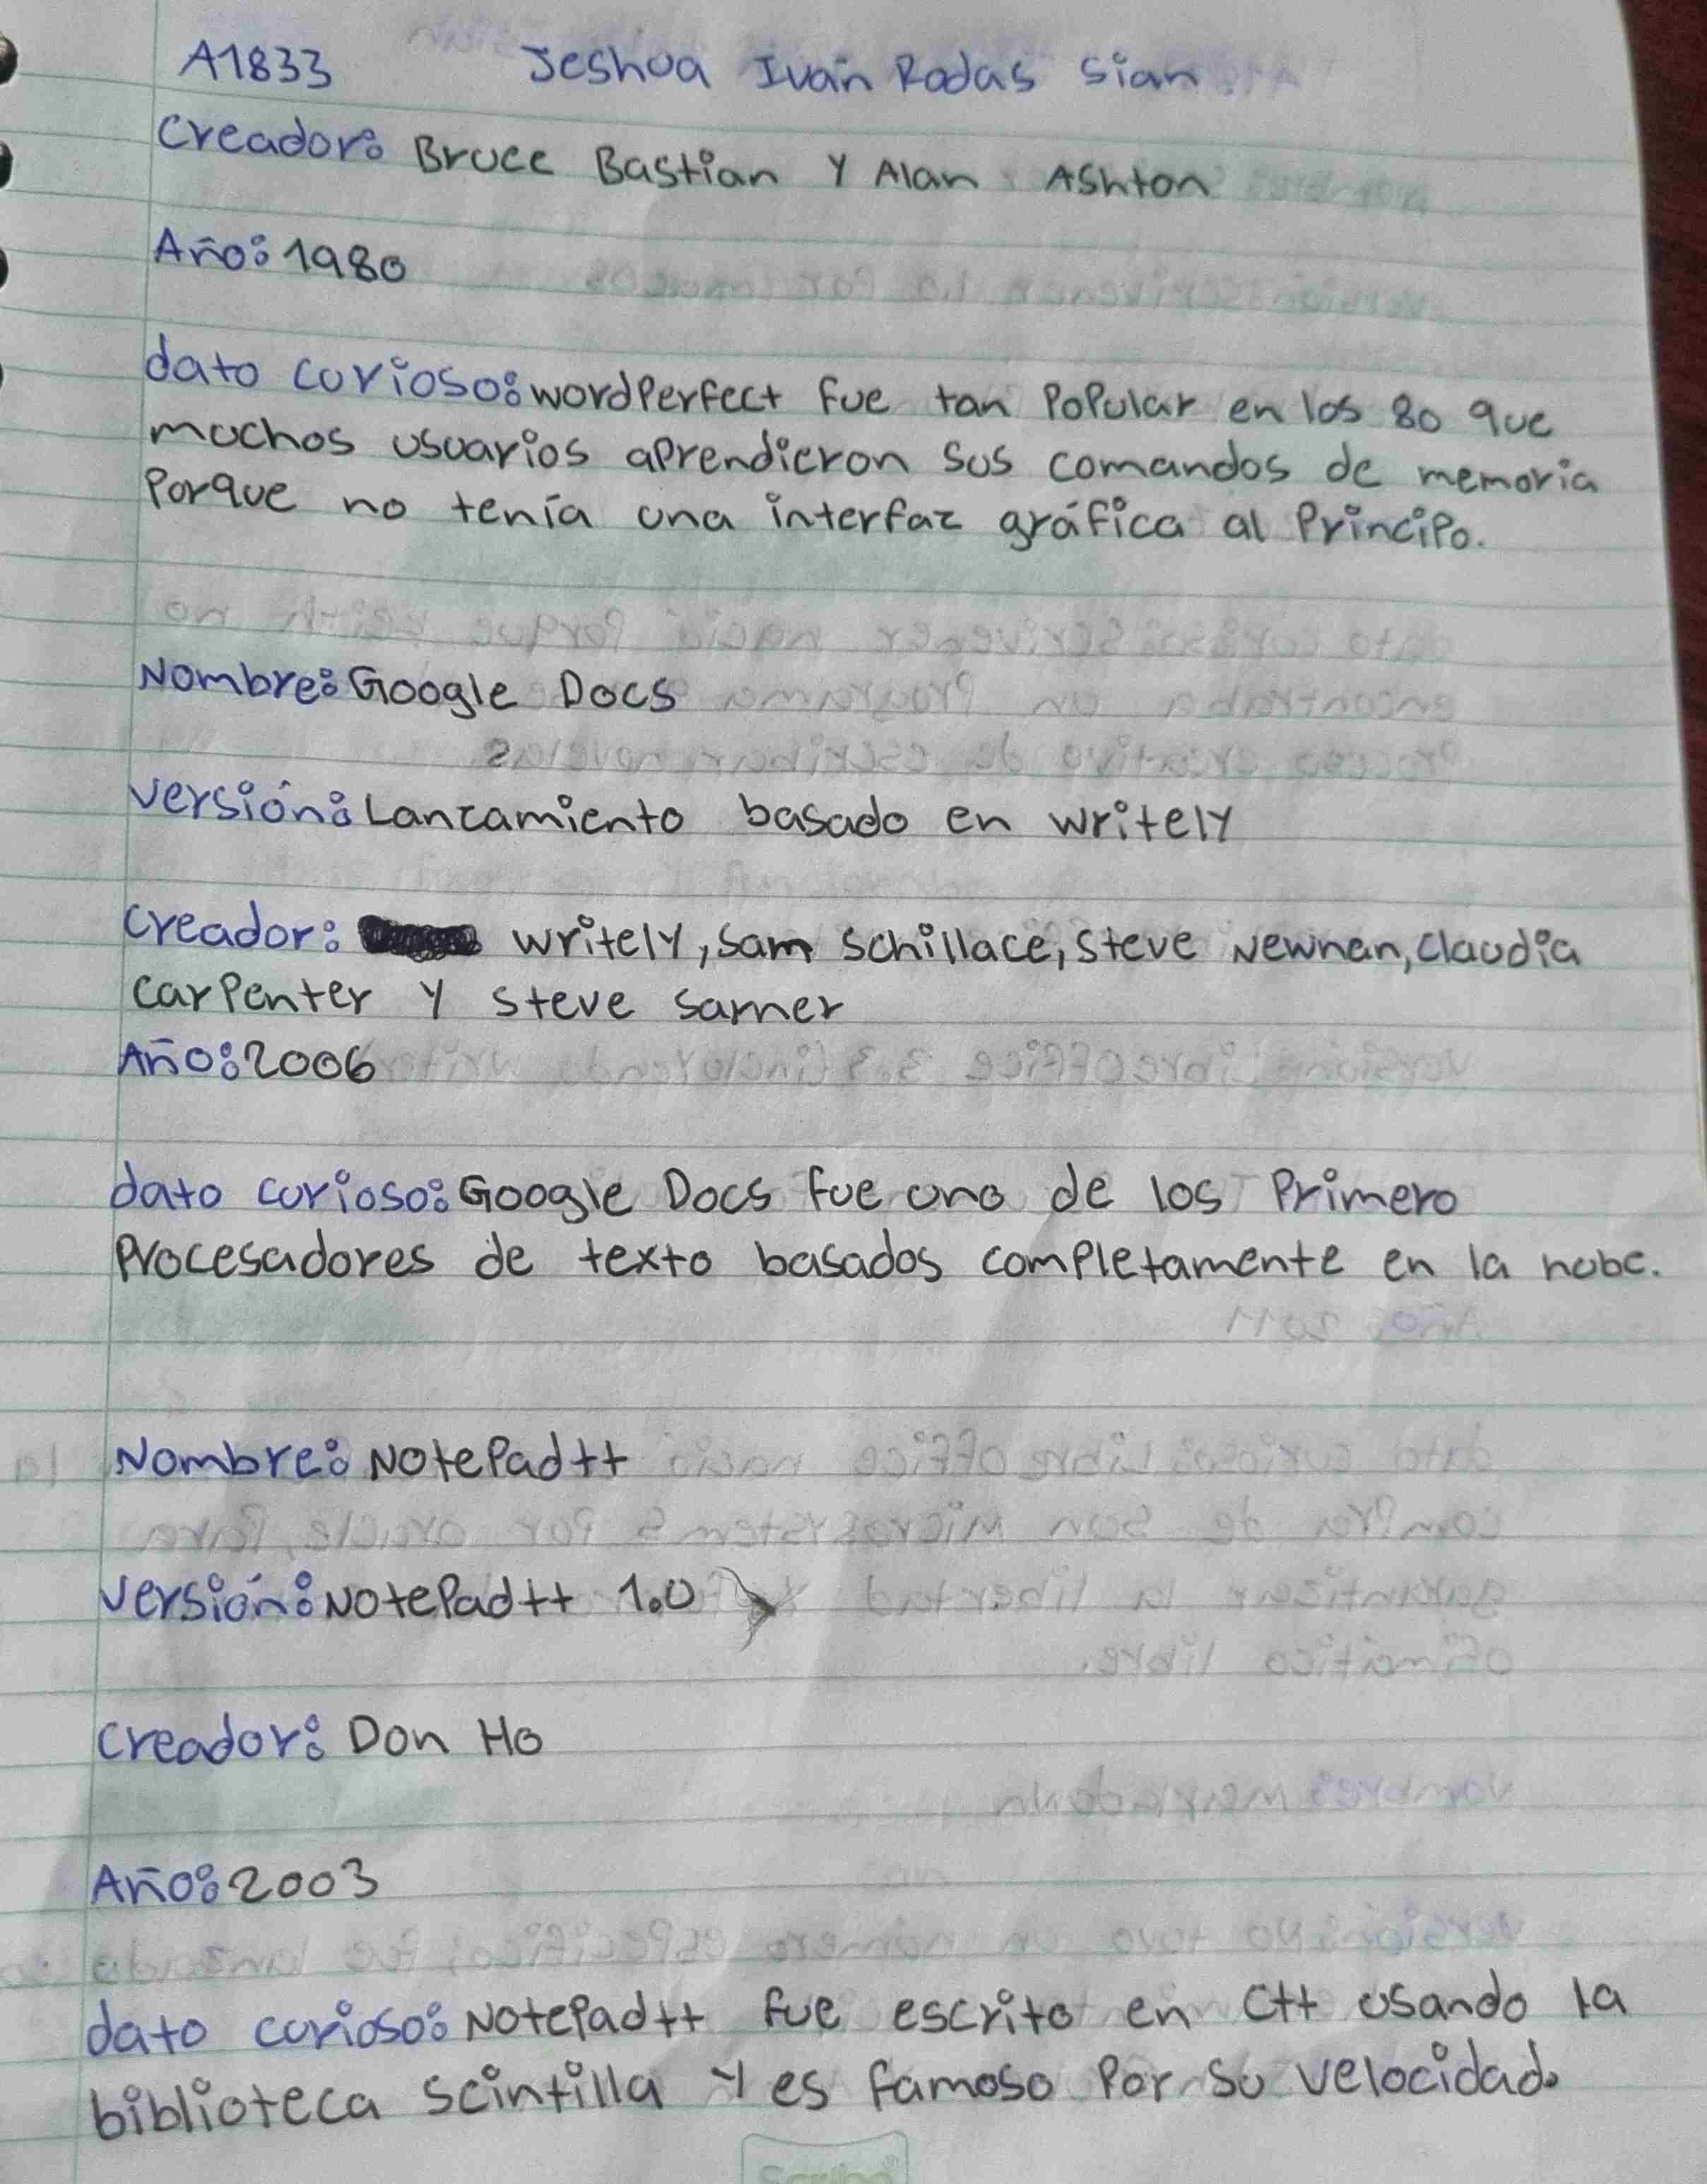 A1833 Jeshua Iván Rodas Sian
Creador: Bruce Bastian Y Alan Ashton
Año: 1980
dato curioso: WordPerfect fue tan Popular en los 80 que
muchos usuarios aprendieron sus comandos de memoria
Porque no tenía una interfaz gráfica al Principo.
Nombre: Google Docs
versión: Lanzamiento basado en writely
Creador: writely, Sam Schillace, Steve Newnan, Claudia
Carpenter y Steve Samer
Año: 2006
dato curioso: Google Docs fue uno de los Primero
Procesadores de texto basados completamente en la nube.
Nombre: NotePad++
versión: NotePad++ 1.0
Creador: Don Ho
Año: 2003
dato curioso: NotePad++ fue escrito en C++ usando la
biblioteca Scintilla Y es famoso Por su velocidad.
Scribe